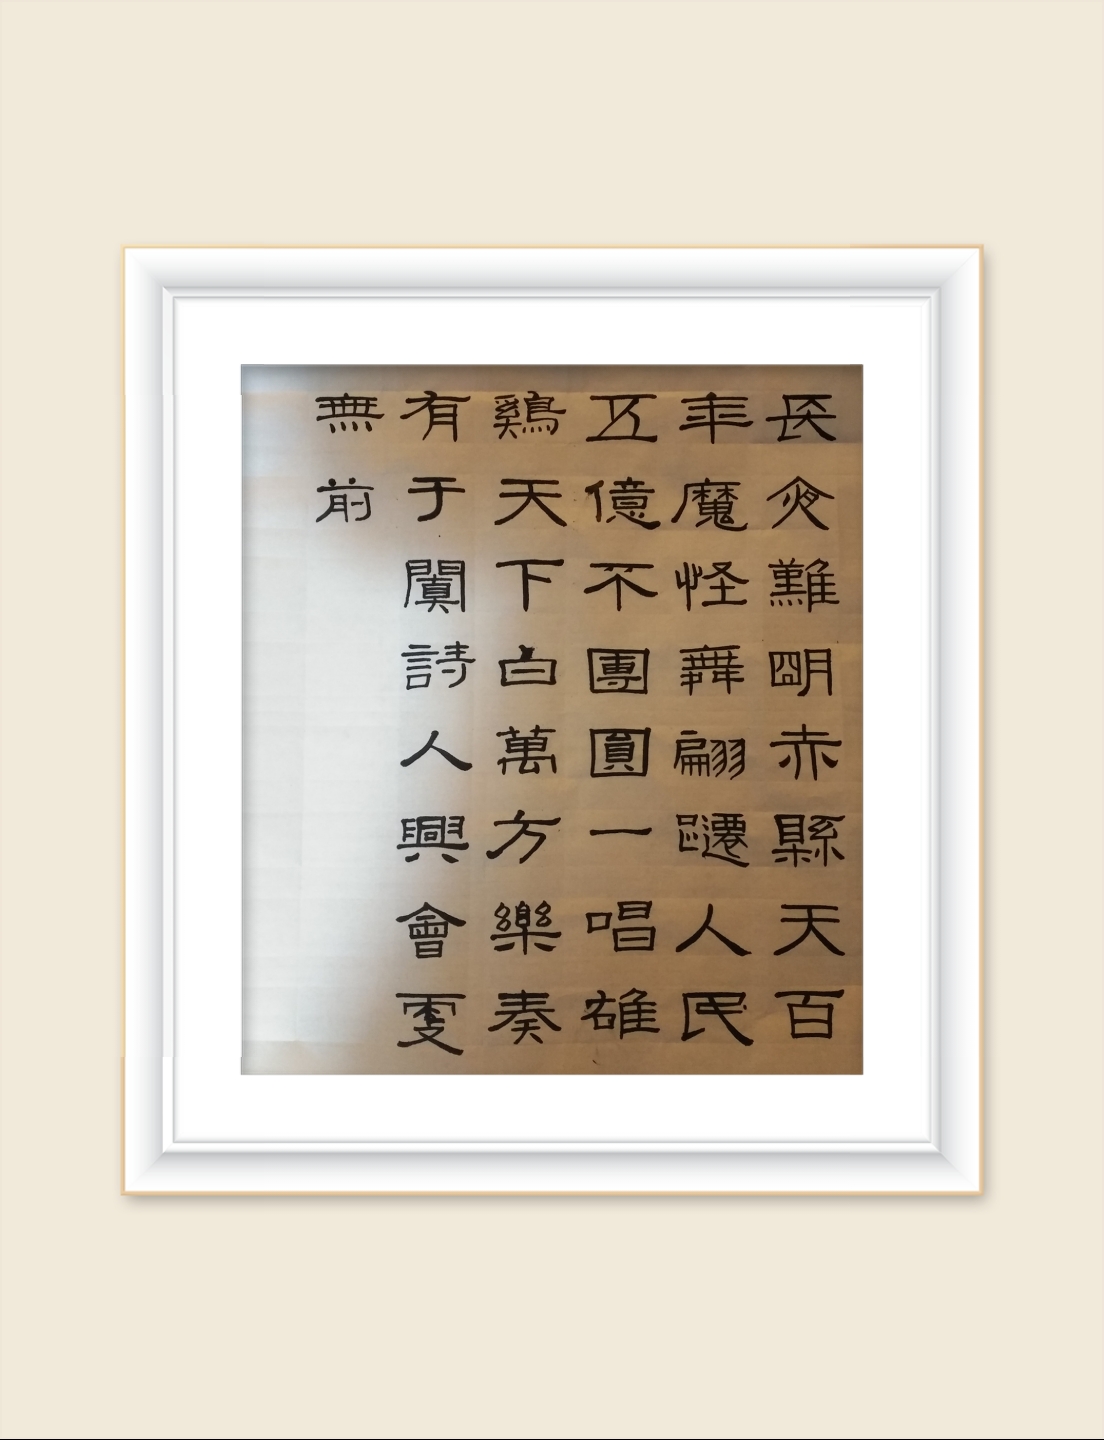 長夜難明赤縣天百
年魔怪舞翩躚人民
五億不團圓一唱雄
鷄天下白萬方樂奏
有于闐詩人興會更
無前